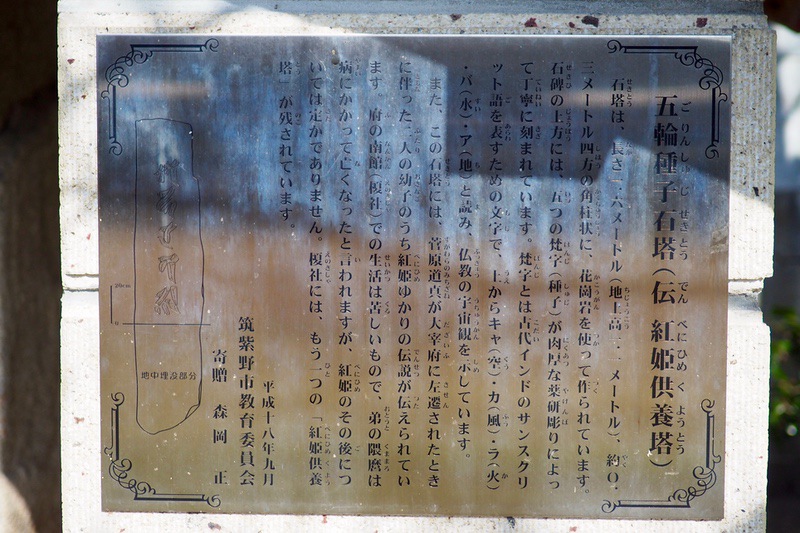 五輪種子石塔(伝 紅姫供養塔)
石塔は、長さ一.六メートル(地上高一.一メートル)、約〇.
三メートル四方の角柱状に、花崗岩を使って作られています。
石碑の上方には、五つの梵字(種子)が肉厚な薬研彫りによっ
て丁寧に刻まれています。梵字とは古代インドのサンスクリ
ット語を表すための文字で、上からキャ(空)・カ(風)・ラ(火)
・バ(水)・ア(地)と読み、仏教の宇宙観を示しています。
また、この石塔には、菅原道真が大宰府に左遷されたとき
に伴った二人の幼子のうち紅姫ゆかりの伝説が伝えられてい
ます。府の南館(榎社)での生活は苦しいもので、弟の隈麿は
病にかかって亡くなったと言われますが、紅姫のその後につ
いては定かでありません。榎社には、もう一つの「紅姫供養
塔」が残されています。
平成十八年九月
筑紫野市教育委員会
寄贈 森岡 正
20cm
0
地中埋設部分